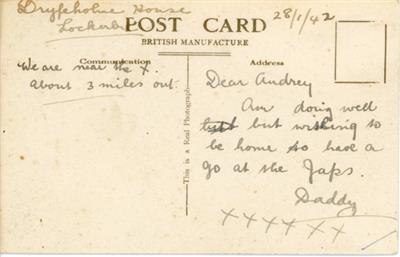 Dryfeholme House
Lockerbie
28/1/42
POST CARD
BRITISH MANUFACTURE
Communication
Address
We are near the X.
About 3 miles out.
This is a Real Photograph
Dear Audrey
Am doing well
but but wishing to
be home to have a
go at the Japs.
Daddy
XXXXXX